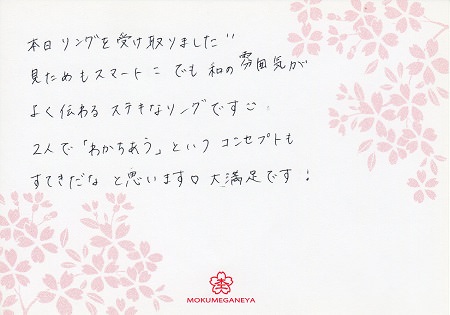 本日リングを受け取りました!!
見ためもスマートに でも和の雰囲気が
よく伝わるステキなリングです
2人で「わかちあう」というコンセプトも
すてきだな と思います♡大満足です!
MOKUMEGANEYA